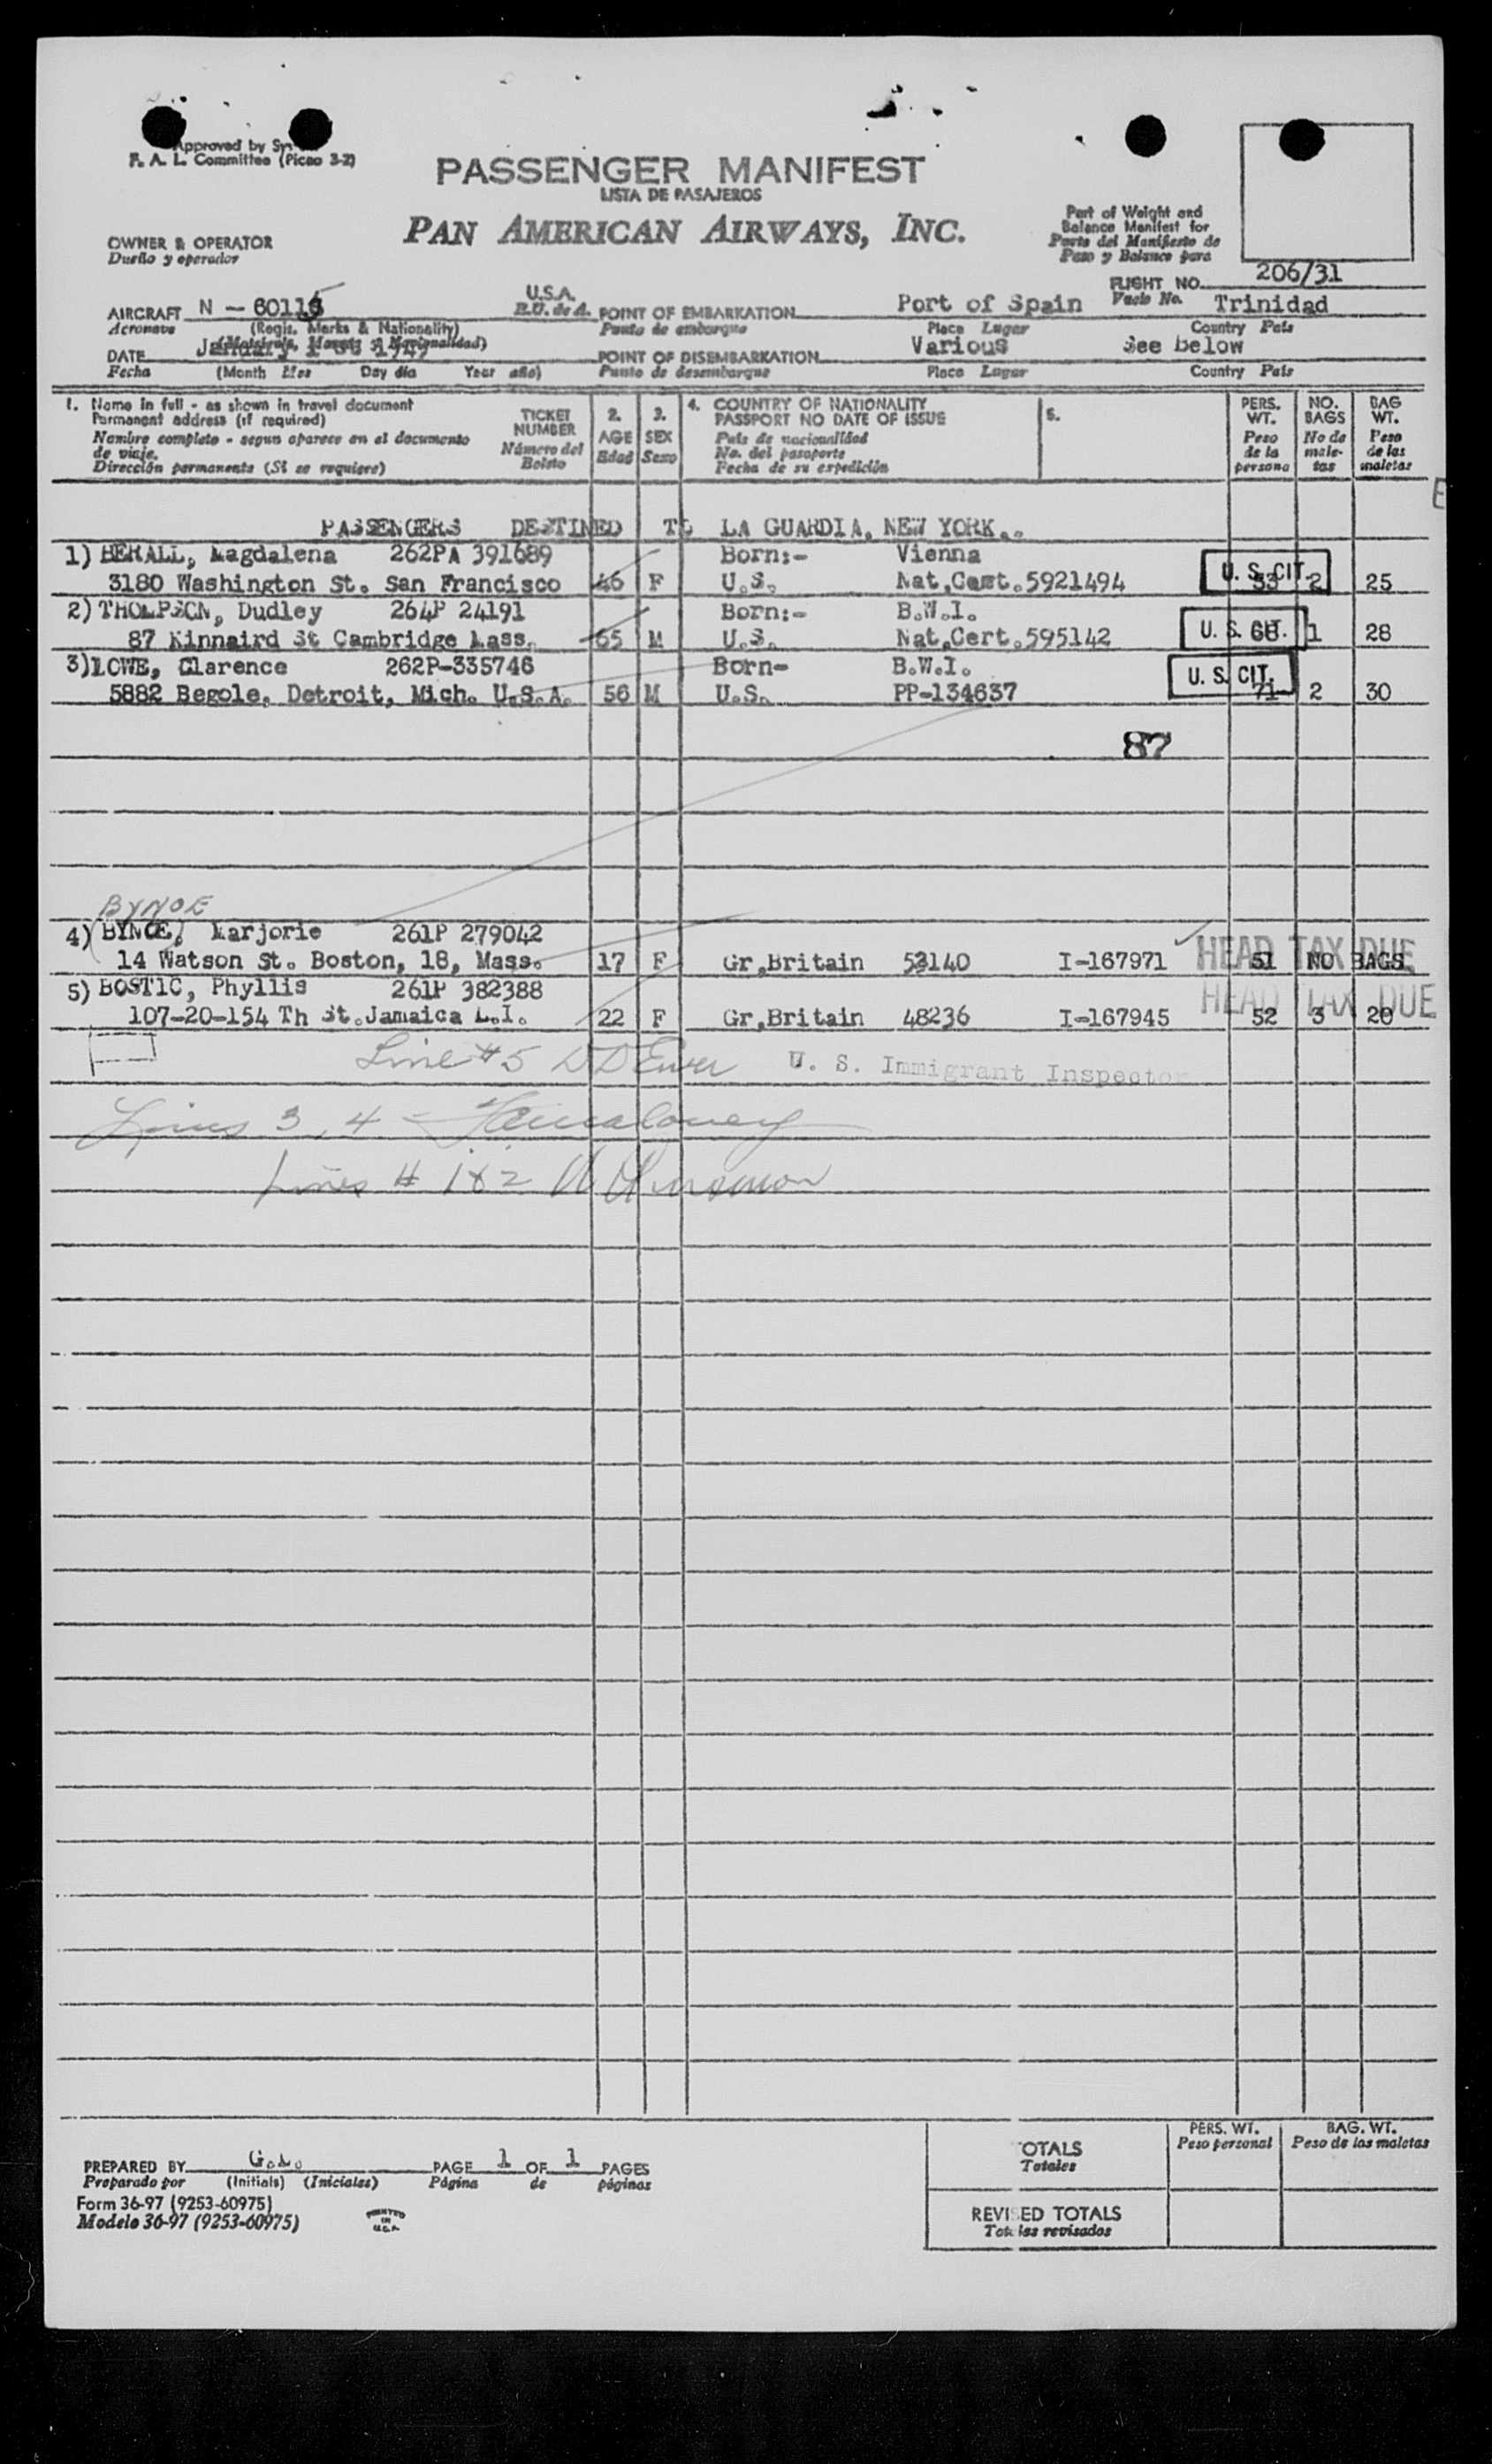 Approved by
F. A. L. Committee (Picao 3-2)
PASSENGER MANIFEST
LISTA DE PASAJEROS
PAN AMERICAN AIRWAYS, INC.
OWNER & OPERATOR
Dueño y operador
Part of Weight and
Balance Manifest for
Parte del Manifiesto de
Peso y Balance para
FLIGHT NO. 206/31
Vuelo No.
AIRCRAFT N - 6011 U.S.A. POINT OF EMBARKATION Port of Spain Trinidad
Aeronave (Regis. Marks & Nationality) E.U. de A. Punto de embarque Place Lugar Country País
(Matrícula, Marcas y Nacionalidad)
DATE January 1947 POINT OF DISEMBARKATION Various See below
Fecha (Month Mes Day día Year año) Punto de desembarque Place Lugar Country País
1. Name in full - as shown in travel document
Permanent address (if required)
Nombre completo - segun aparece en el documento
de viaje.
Dirección permanente (Si se requiere)
TICKET
NUMBER
Número del
Boleto
2.
AGE
Edad
3.
SEX
Sexo
4. COUNTRY OF NATIONALITY
PASSPORT NO DATE OF ISSUE
País de nacionalidad
No. del pasaporte
Fecha de su expedición
5.
PERS.
WT.
Peso
de la
persona
NO.
BAGS
No de
male-
tas
BAG
WT.
Peso
de las
maletas
E
PASSENGERS DESTINED TO LA GUARDIA, NEW YORK..
1) BERALL, Magdalena 262PA 391689 Born:- Vienna
3180 Washington St. San Francisco 46 F U.S. Nat.Cert.5921494 U. S. CIT. 53 2 25
2) THOMPSON, Dudley 264P 24191 Born:- B.W.I.
87 Kinnaird St Cambridge Mass. 65 M U.S. Nat.Cert.595142 U. S. CIT. 68 1 28
3) LOWE, Clarence 262P-335746 Born- B.W.I.
5882 Begole, Detroit, Mich. U.S.A. 56 M U.S. PP-134637 U. S. CIT. 71 2 30
87
BYNOE
4) BYNOE, Marjorie 261P 279042
14 Watson St. Boston, 18, Mass. 17 F Gr,Britain 53140 I-167971 HEAD TAX DUE 51 NO BAGS
5) BOSTIC, Phyllis 261P 382388
107-20-154 Th St.Jamaica L.I. 22 F Gr,Britain 48236 I-167945 HEAD TAX DUE 52 3 20
Line #5 U. S. Immigrant Inspector
Lines 3, 4 -
Lines # 1&2
PREPARED BY PAGE 1 OF 1 PAGES
Preparado por (Initials) (Iniciales) Página de páginas
Form 36-97 (9253-60975)
Modelo 36-97 (9253-60975)
PRINTED
IN
U.S.A.
PERS. WT. BAG. WT.
Peso personal Peso de las maletas
TOTALS
Totales
REVISED TOTALS
Totales revisados